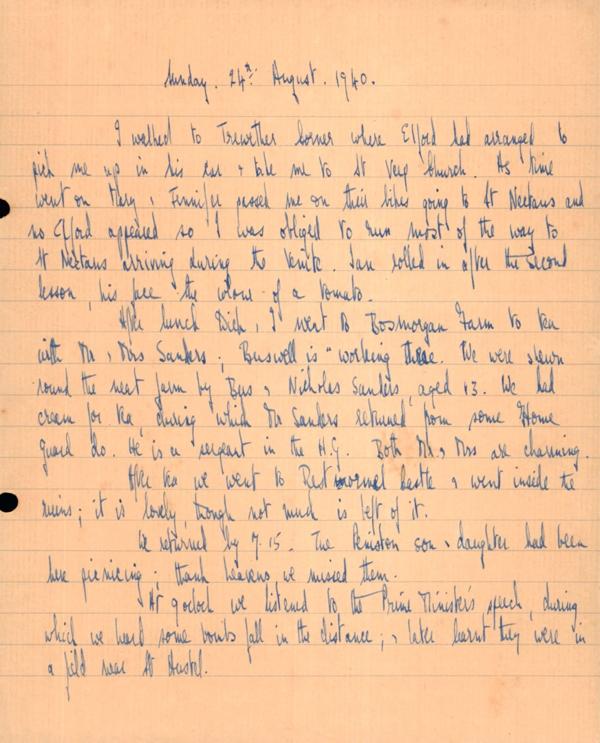 Sunday. 24th August. 1940.
I walked to Trewether Corner where Efford had arranged to
pick me up in his car & take me to St Veep Church. As time
went on Mary & Jennifer passed me on their bikes going to St Nectans and
no Efford appeared so I was obliged to run most of the way to
St Nectans arriving during the Venite. Ian rolled in after the second
lesson, his face the colour of a tomato.
After lunch Dick & I went to Bosmorgan Farm to tea
with Mr & Mrs Sanders; Buswell is "working there. We were shewn
round the neat farm by Bus & Nicholas Sanders, aged 13. We had
cream for tea, during which Mr Sanders returned from some Home
Guard do. He is a sergeant in the H.G. Both Mr & Mrs are charming.
After tea we went to Restormel Castle & went inside the
ruins; it is lovely though not much is left of it.
We returned by 7.15. The Peniston son & daughter had been
here picnicing; thank heavens we missed them.
At 9 oclock we listened to the Prime Minister's speech, during
which we heard some bombs fall in the distance; & later learnt they were in
a field near St Austel.